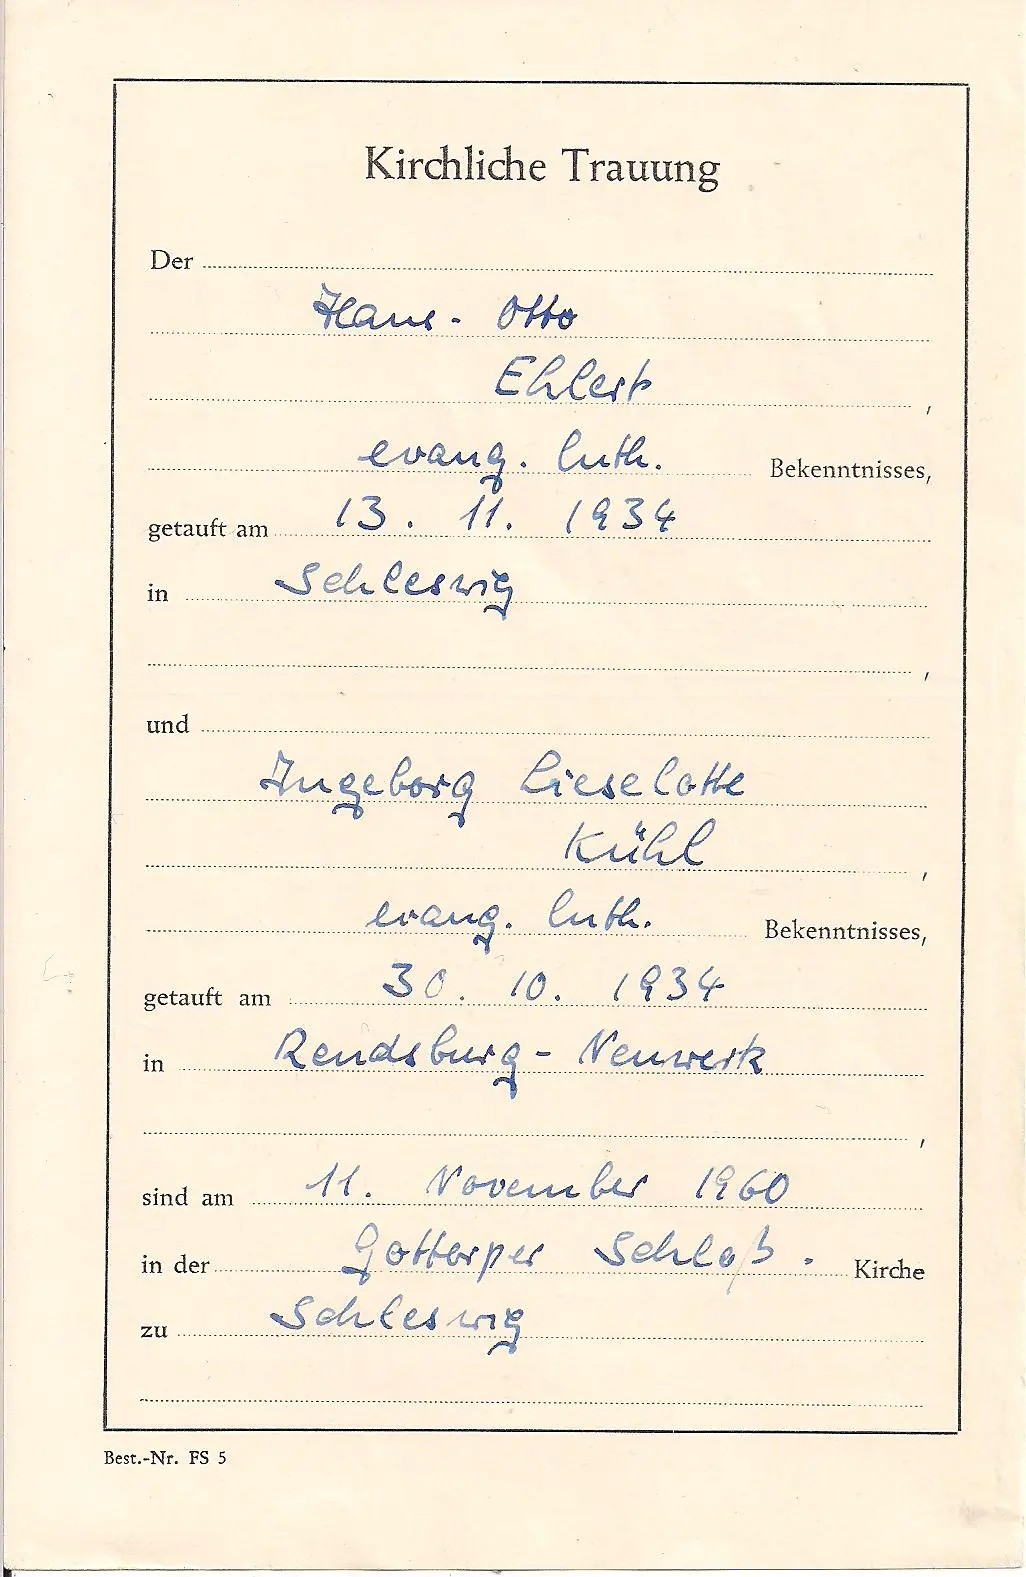 Kirchliche Trauung
Der
Hans-Otto
Ehlert,
evang. luth. Bekenntnisses,
getauft am 13. 11. 1934
in Schleswig
,
und
Ingeborg Lieselotte
Kühl,
evang. luth. Bekenntnisses,
getauft am 30. 10. 1934
in Rendsburg-Neuwerk
,
sind am 11. November 1960
in der Gottorper Schloß- Kirche
zu Schleswig
Best.-Nr. FS 5